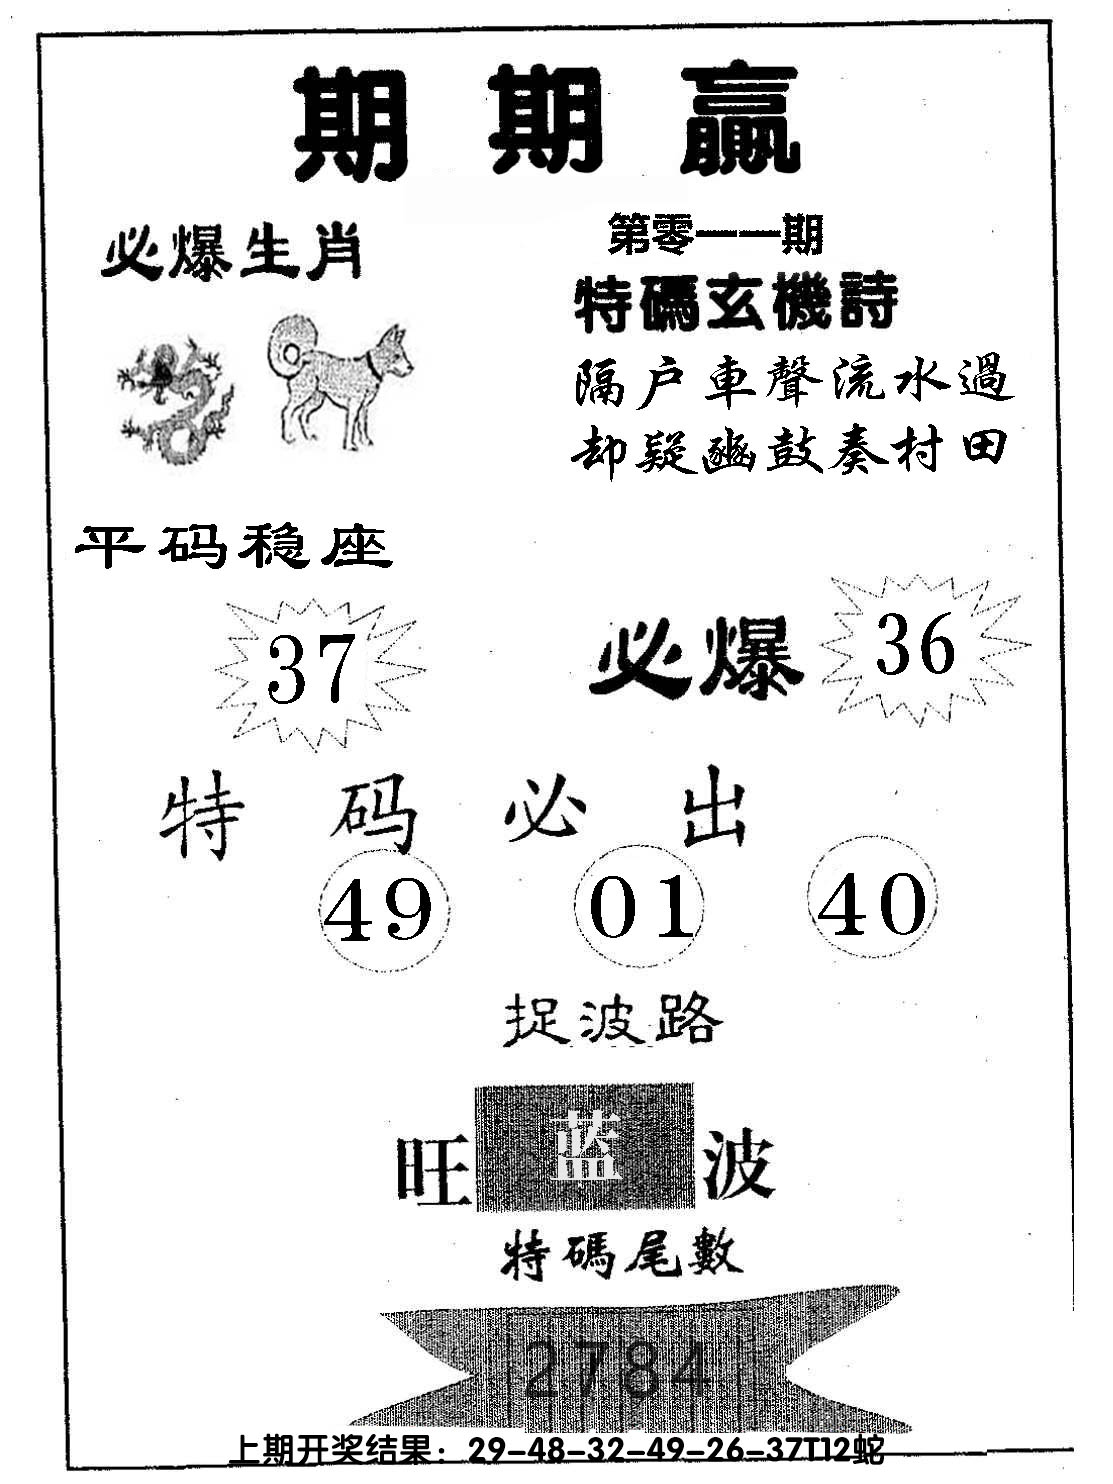 期期赢
必爆生肖
第零一一期
特碼玄機詩
隔户車聲流水過
却疑豳鼓奏村田
平码稳座
37
必爆 36
特码必出
49 01 40
捉波路
旺蓝波
特碼尾數
2784
上期开奖结果：29-48-32-49-26-37T12蛇